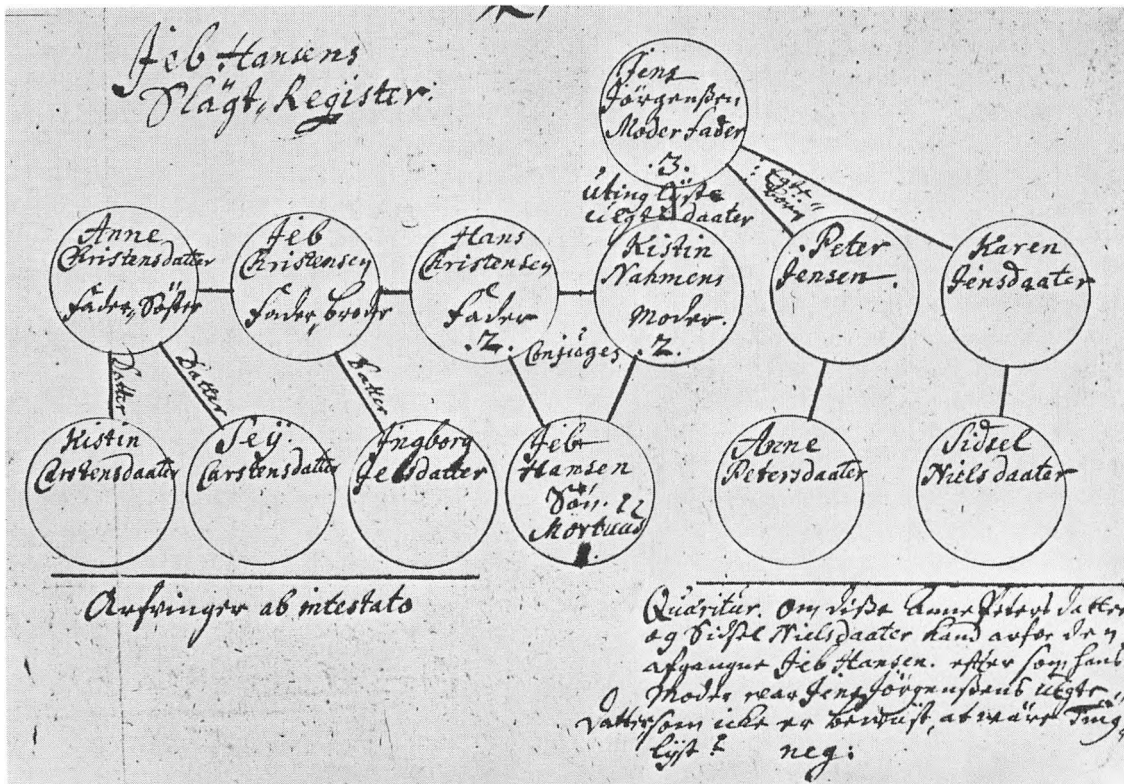 Jeb Hansens
Slägt, Register:
Jens
Jörgenßen
Moder fader
.3.
Uting lyste
Uegte daater
Egte
Anne
Christensdatter
Fader, Söster
Jeb
Christensen
Fader, broder
Hans
Christensen
Fader
.2.
Conjuges
Kistin
Nahmens
Moder.
.2.
Peter
Jensen.
Karen
Jensdaater
Datter
Datter
Datter
Kistin
Carstensdaater
Seÿ.
Carstensdatter
Ingborg
Jebsdatter
Jeb
Hansen
Sön.
Mortuus
Anne
Petersdaater
Sidsel
Nielsdaater
Arfvinger ab intestato
Quäritur. Om diße Anne Peters datter
og Sidsel Nielsdaater kand arfve den
afgangne Jeb Hansen. efter som hans
Moder war Jens Jörgenßens Uegte
Datter, som icke er bewust, at wäre Ting,
lyst? neg: